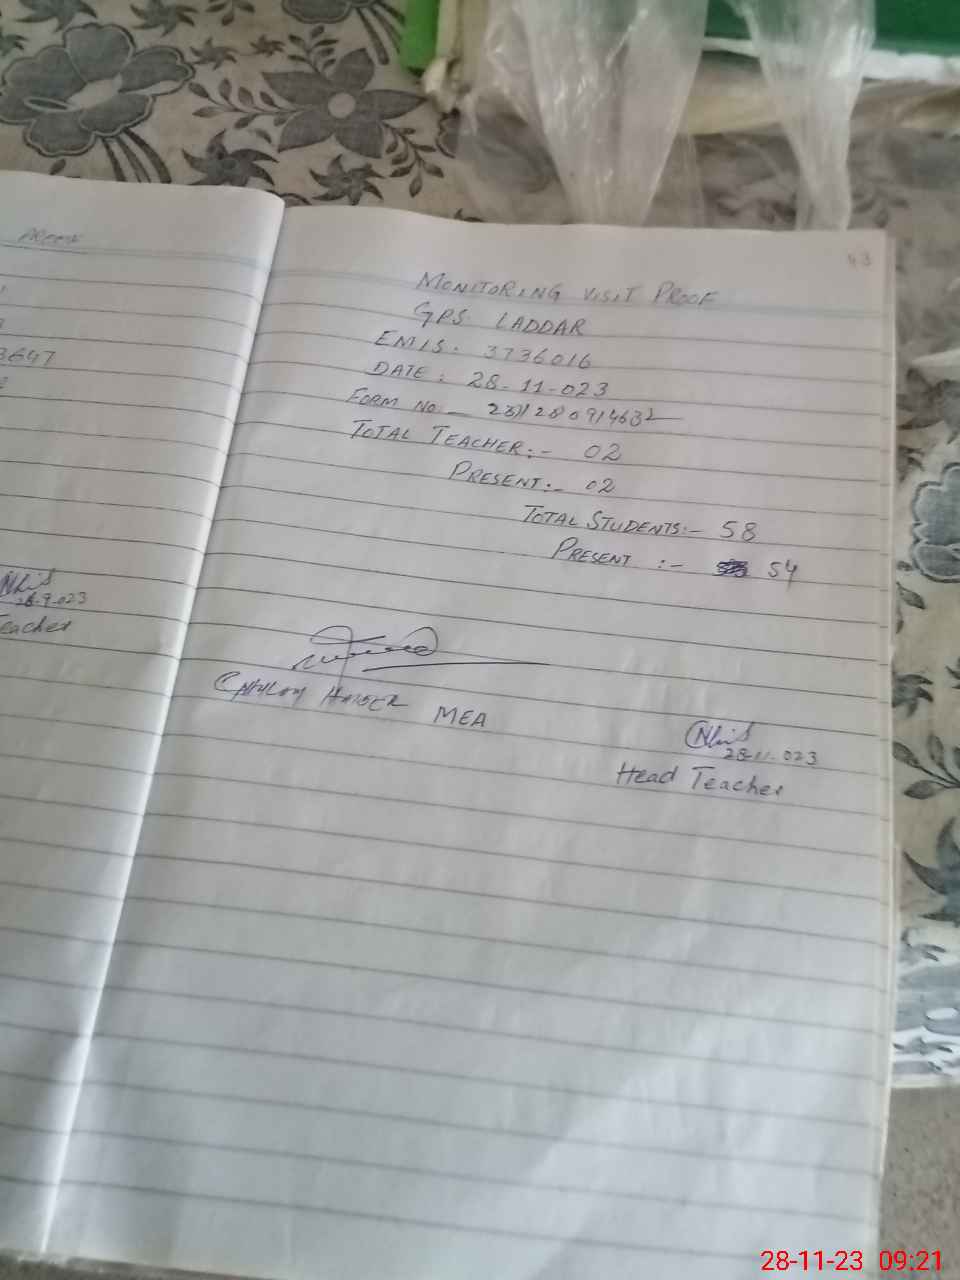 PROOF
3647
28-9-023
Teacher
43
MONITORING VISIT PROOF
GPS LADDAR
EMIS: 3736016
DATE: 28-11-023
FORM NO:-
TOTAL TEACHER:- 02
PRESENT:- 02
TOTAL STUDENTS:- 58
PRESENT :- 54
HAIDER MEA
28-11-023
Head Teacher
28-11-23 09:21